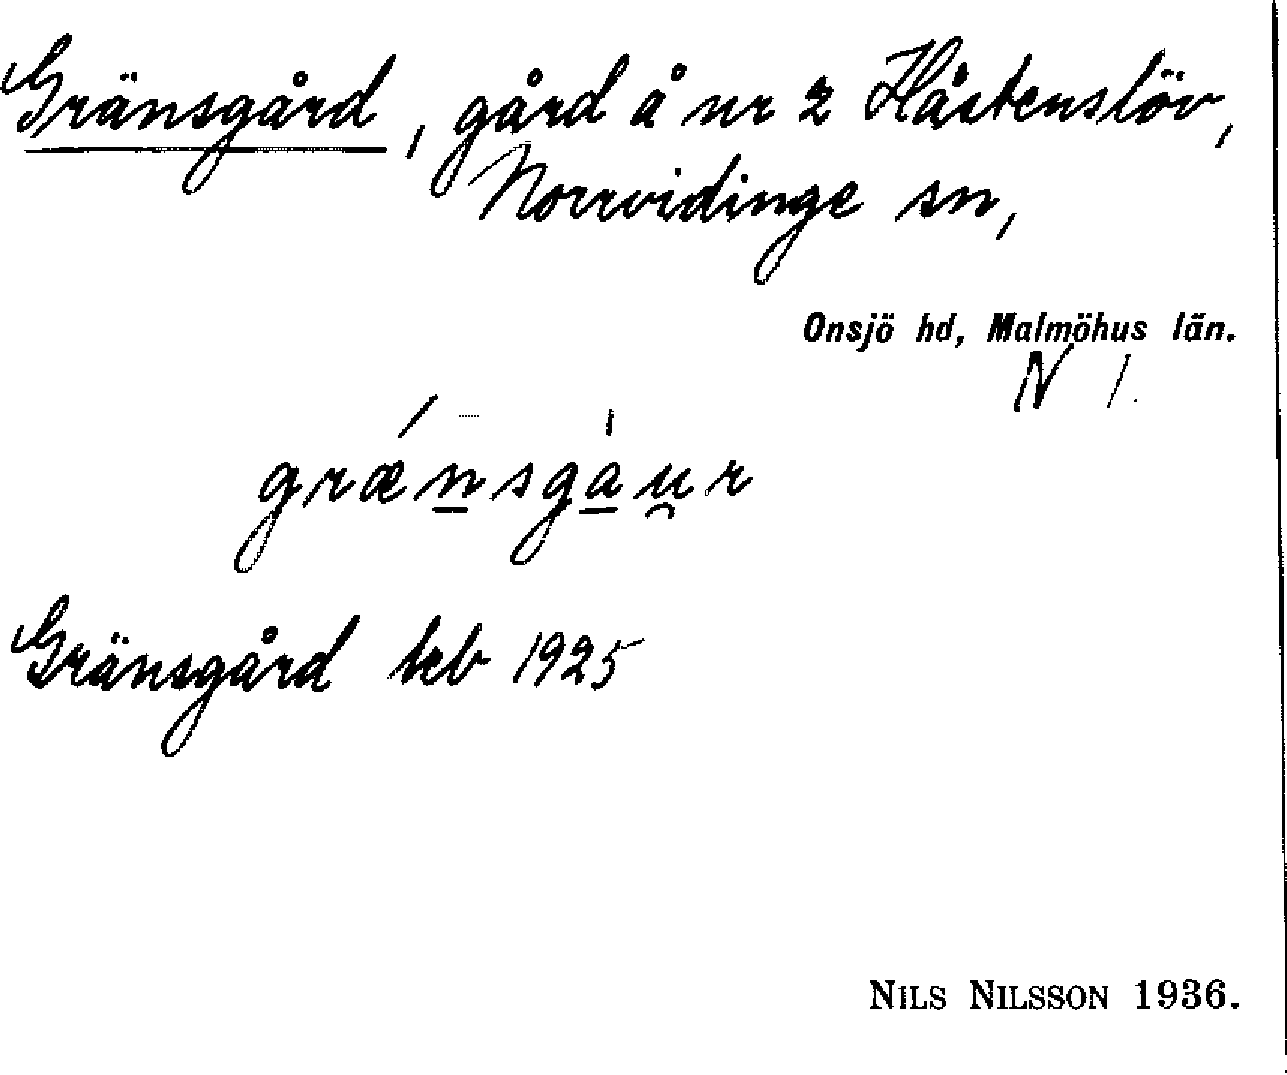 Gränsgård, gård å nr 2 Håstenslöv,
Norrvidinge sn,
Onsjö hd, Malmöhus län.
N 1.
grǽn̲sga̲̍u̯r
Gränsgård teb 1925
NILS NILSSON 1936.